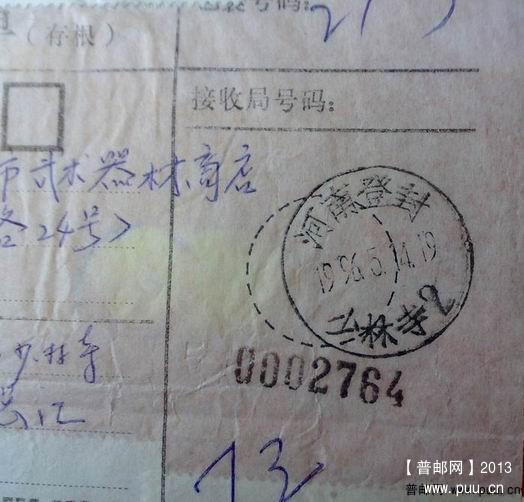 （存根）
接收局号码：
市武术器材商店
路24号〉
河南登封
1996.5.14.19
少林寺2
少林寺
0002764
13
【普邮网】2013
www.puu.cn